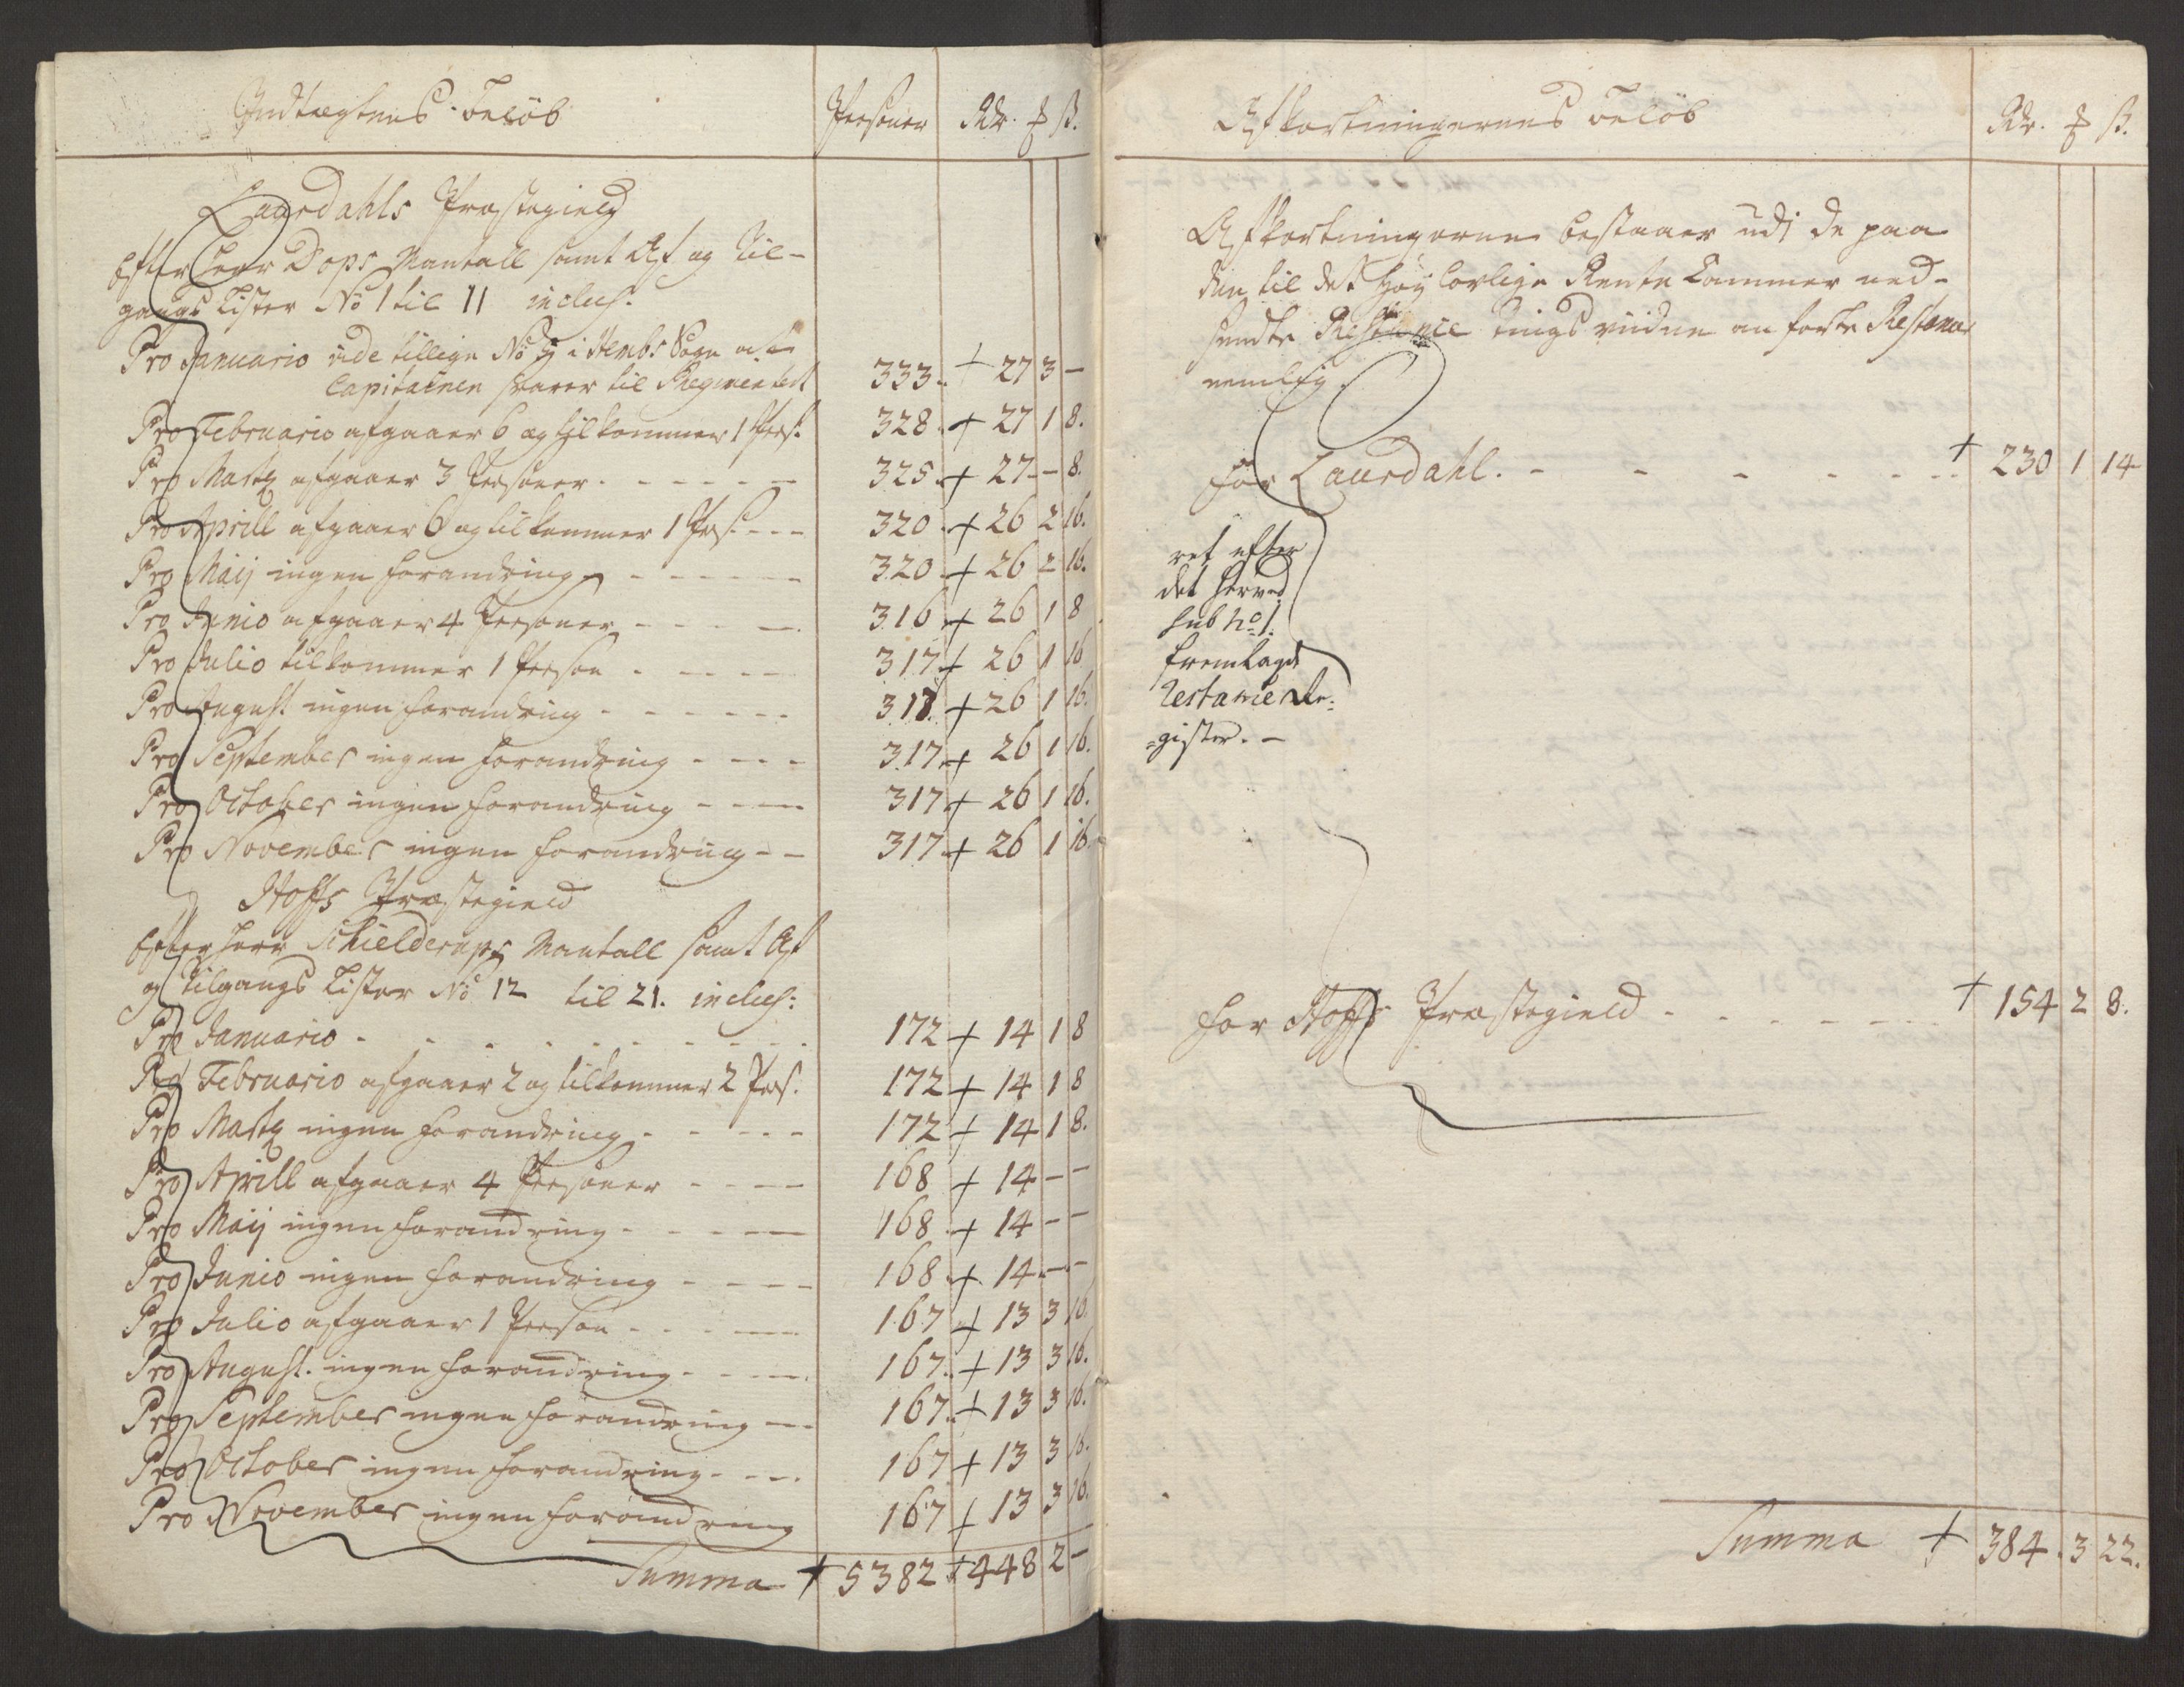 Indtægtens Beløb Personer Rdr. ₰ ß.
Laurdahls Præstegield
Efter Herr Dops Mantall samt Af og Til-
gangs Lister No 1 til 11 inclus:
Pro Januario vide tillige No 9 i Hembs Sogn at
Capitainen svarer til Regimentet 333. + 27 3 -
Pro Februario afgaaer 6 og tilkommer 1 Pers: 328. + 27 1 8.
Pro Marty afgaaer 3 Personer. - - - - - 325. + 27 - 8.
Pro Aprill afgaaer 6 og tilkommer 1 Pers: - - - 320. + 26 2 16.
Pro Maij ingen forandring - - - - - 320. + 26 2 16.
Pro Junio afgaaer 4 Personer - - - - 316 + 26 1 8
Pro Julio tilkommer 1 Person - - - - 317 + 26 1 16
Pro August. ingen forandring - - - - - 317. + 26 1 16.
Pro September ingen forandring - - - - 317. + 26 1 16.
Pro October ingen forandring - - - - 317 + 26 1 16.
Pro November ingen forandring - - 317. + 26 1 16.
Hoffs Præstegield
Efter Herr Schielderups Mantall samt Af
og Tilgangs Lister No 12 til 21. inclus:
Pro Januario - - - - - - - - 172 + 14 1 8
Pro Februario afgaaer 2 og tilkommer 2 Pers. 172 + 14 1 8
Pro Marty ingen forandring - - - - - 172 + 14 1 8.
Pro Aprill afgaaer 4 Personer - - - - 168 + 14 - -
Pro Maij ingen forandring - - - - - 168. + 14 - -
Pro Junio ingen forandring - - - - 168. + 14 - -
Pro Julio afgaaer 1 Person - - - - 167 + 13 3 16.
Pro August. ingen forandring - - - - 167. + 13 3 16.
Pro September ingen forandring - - - 167. + 13 3 16.
Pro October ingen forandring - - - 167 + 13 3 16.
Pro November ingen forandring 167 + 13 3 16.
Summa + 5382 + 448 2 -
Afkortningernes Beløb Rdr. ₰ ß.
Afkortningerne bestaaer udi de paa
den til det Høy lovlige Rente Cammer ned-
sendte Restance tings vidne an førte Restancer
nemlig
for Laurdahl. - - - - - + 230 1 14
ret efter
det herved
sub No 1.
fremlagde
Restance Re-
-gister. -
for Hoffs Præstegield - - - - - + 154 2 8.
Summa + 384. 3 22.